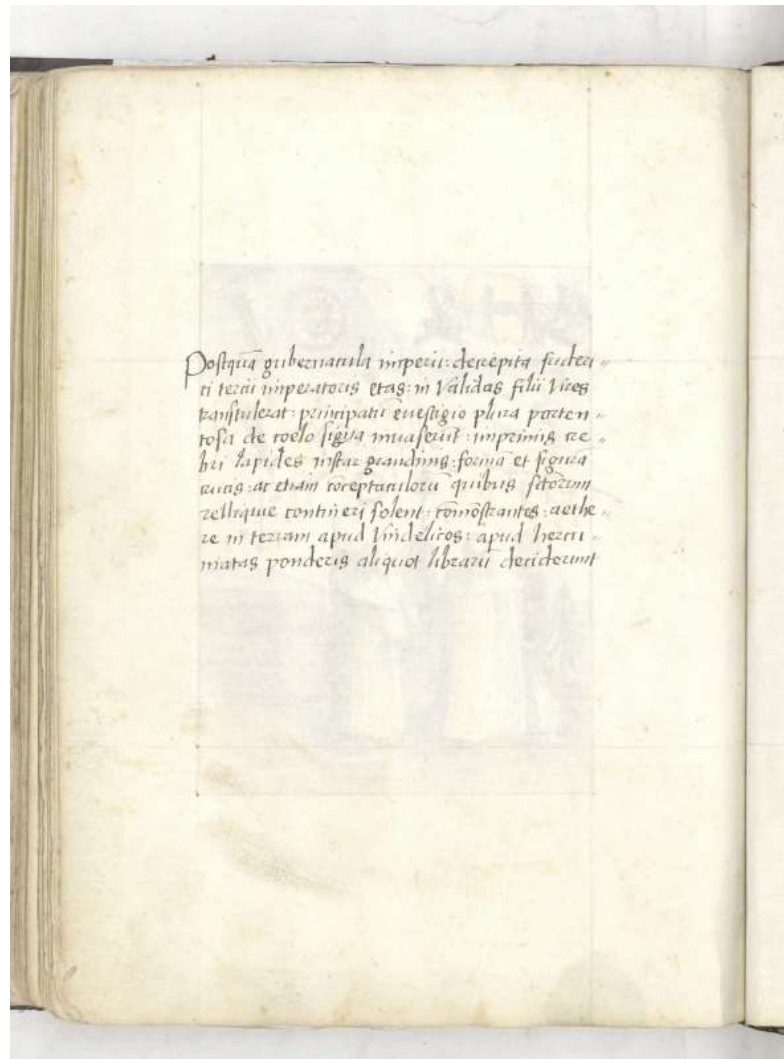 Postquā gubernacula imperii: decrepita frideri〃
ci tercii imperatoris etas: in Validas filii Vires
transtulerat: principatū ēuestigio plura porten〃
tosa de coelo signa inuaserūt: imprimis cre〃
bri lapides instar grandinis: formā et figurā
crucis: ac etiam cōceptaculorū quibus sctōrum
relliquie contineri solent: cōmōstrantes: aethe〃
re in terram apud Vindelicos: apud hercu〃
niatas ponderis aliquot librarū deciderunt